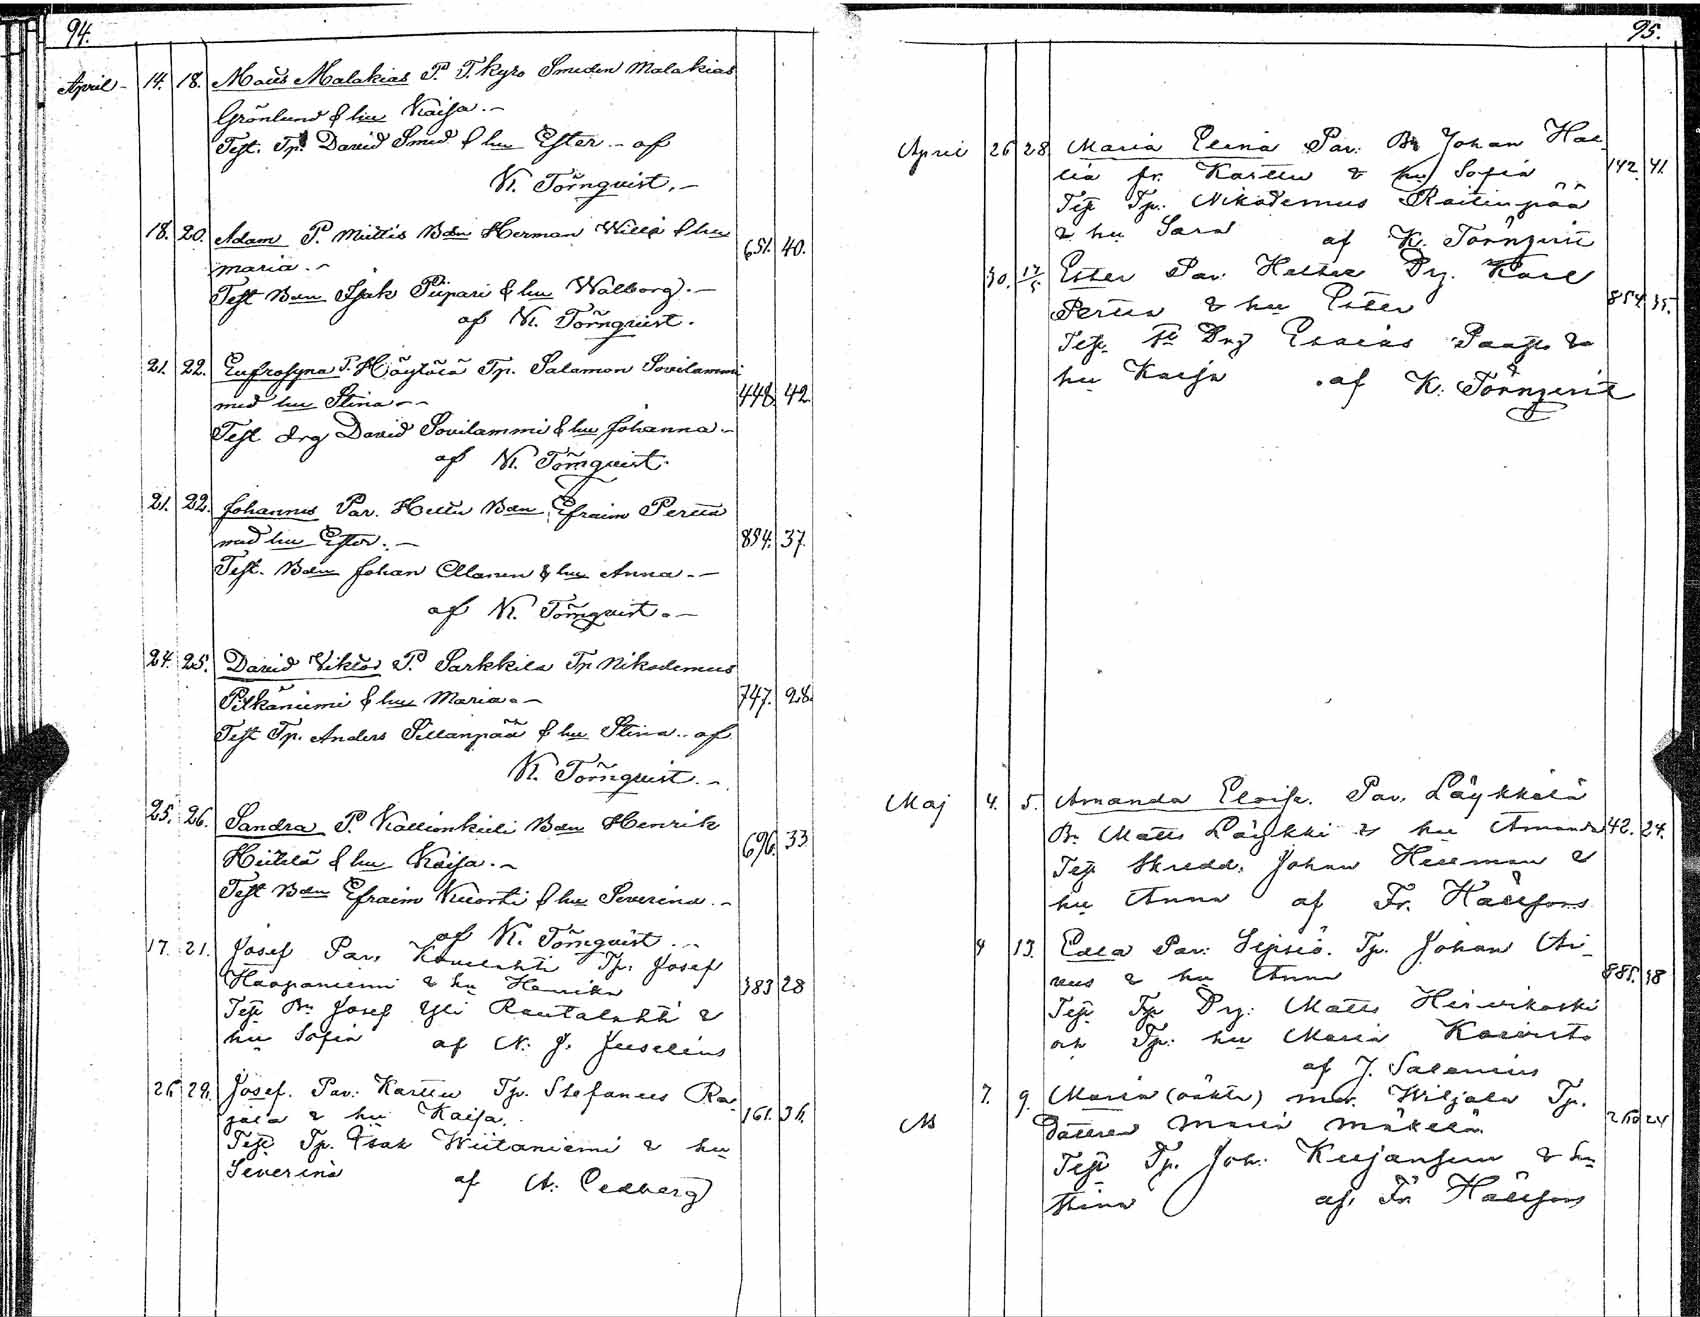 94.
April - 14. 18. Matts Malakias P. T. kyro Smeden Malakias
Grönlund & hu Kaisa. -
Test. Tp. David Smed & hu Ester. - af
K. Törnqvist. -
18. 20. Adam P. Miettis Bdn Herman Willa & hu 651. 40.
Maria. -
Test Bdn Isak Piipari & hu Walborg. -
af K. Törnqvist.
21. 22. Eufrosyna P. Höytölä Tp. Salamon Sovilammi
med hu Stina - - 448. 42.
Test drg David Sovilammi & hu Johanna -
af K. Törnqvist.
21. 22. Johannes Par. Hettu Bdn Efraim Perttu
med hu Ester. - 854. 37.
Test. Bdn Johan Ollonen & hu Anna. -
af K. Törnqvist. -
24. 25. David Viktor P. Sarkkila Tp Nikodemus
Pitkäniemi & hu Maria. - 747. 28.
Test Tp. Anders Sillanpää & hu Stina. - af
K. Törnqvist. -
25. 26. Sandra P. Kallionkieli Bdn Henrik 696. 33
Hietala & hu Kaisa. -
Test Bdn Efraim Kuorti & hu Severina. -
af K. Törnqvist. -
17. 21. Josef Par. Tp. Josef
Haapaniemi & hu Henrika 383 28
Test Bn Josef Yli Rautalahti &
hu Sofia af N. J. Juselius
26 29. Josef. Par. Karttu Tp. Stefanus Ra-
jala & hu Kaisa. 161. 36.
Test Tp. Isak Wiitaniemi & hu
Severina af A. Cedberg
95.
April 26 28 Maria Elina Par. Bn Johan Hal-
lia fr. Karttu & hu Sofia 142. 41.
Test Tp. Nikodemus Raitinpää
& hu Sara af K. Törnqvist
30. 17/5 Ester Par. Hettu Drg. Karl
Perttu & hu Ester 854. 35.
Test Drg Esaias &
hu Kaisa af K. Törnqvist
Maj 4. 5. Amanda Eloisa. Par. Löykkälä
Bn Matts Löykki & hu Amanda 42. 24.
Test Skredd. Johan Hellman &
hu Anna af Fr. Hällfors
4 13. Edla Par. Tp. Johan
& hu Anna 885. 38
Test Tp Drg. Matts Hirvikoski
och Tp. hu Maria Koivisto
af J. Salenius
7. 9. Maria (oäkta) Wiljala Tp.
Dottren Maria Mäkelä 24
Test Tp. Joh. & hu
Stina af Fr. Hällfors